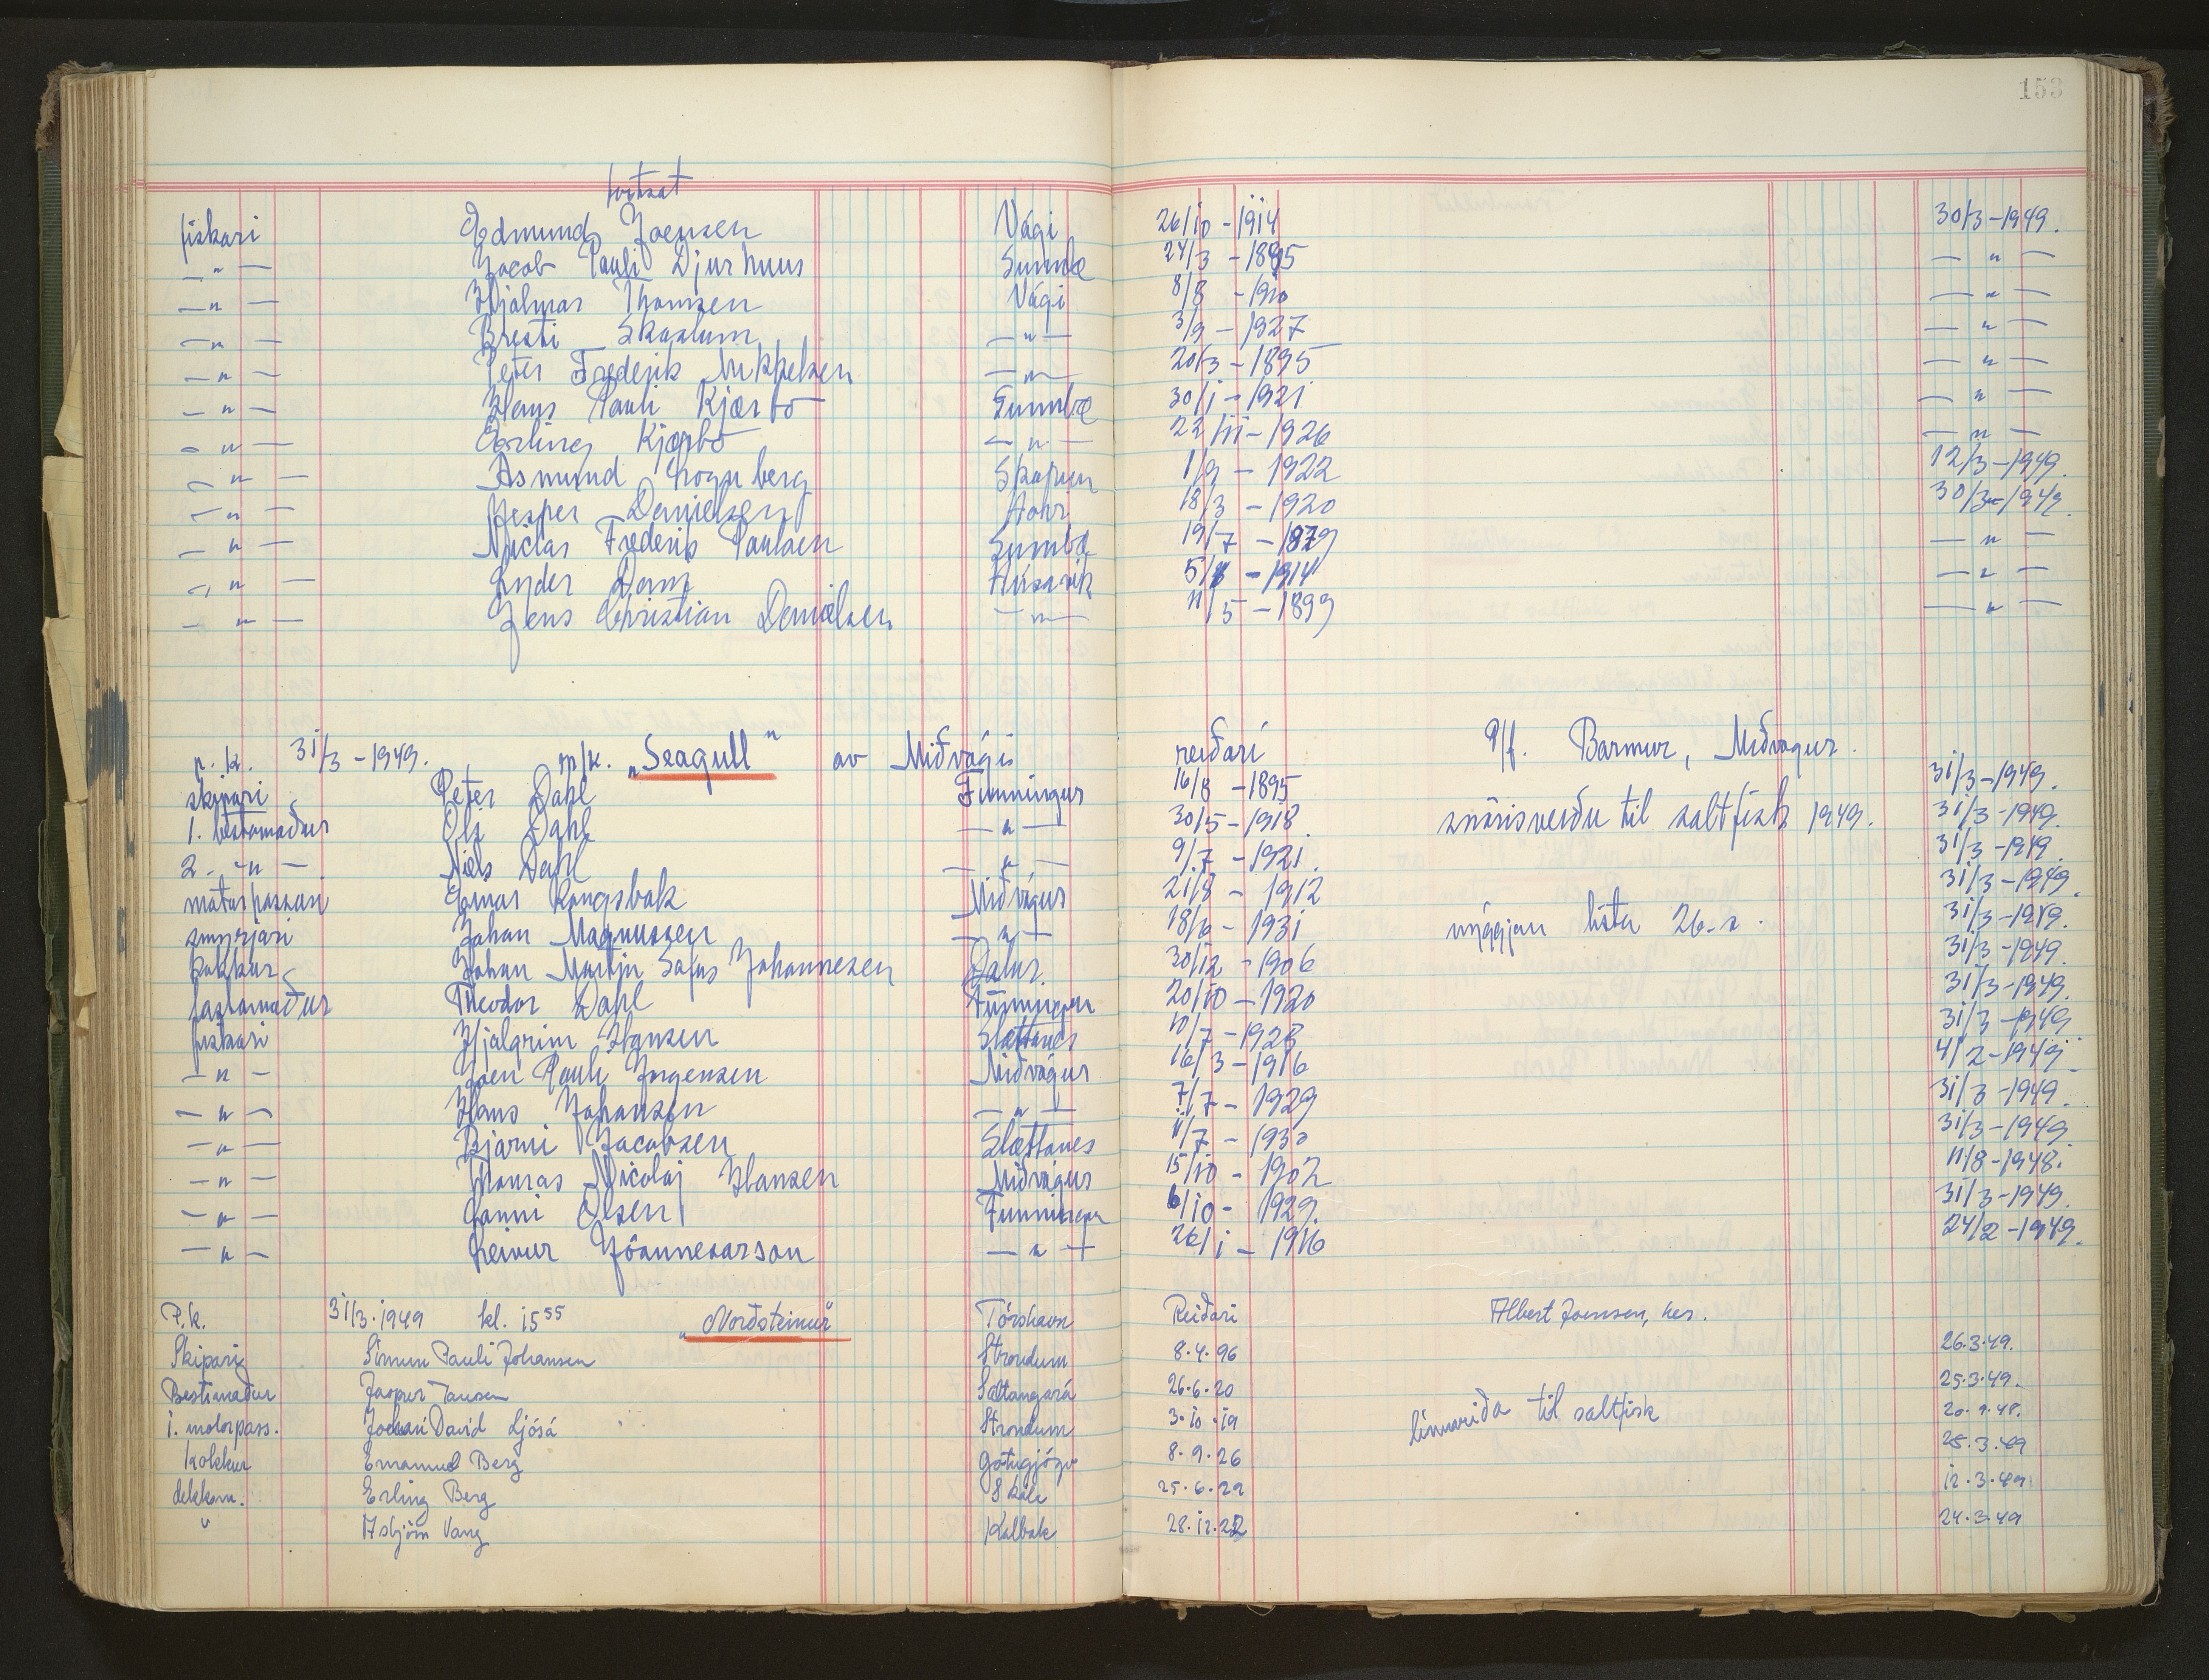 153
fortsat
fiskari Edmund Joensen Vági 26/10-1914 30/3-1949.
—"— Jacob Pauli Djurhuus Sumbæ 24/3-1895 —"—
—"— Hjalmar Thomsen Vági 8/8-1910 —"—
—"— Bresti Skaalum —"— 3/9-1927 —"—
—"— Peter Frederik Mikkelsen —"— 20/3-1895 —"—
—"— Hans Pauli Kjærbo Sumbæ 30/1-1921 —"—
—"— Erling Kjærbo —"— 22/11-1926 —"—
—"— Asmund Høgnaberg Skopun 1/9-1922 12/3-1949.
—"— Jesper Danielsen 18/3-1920 30/3-1949.
—"— Niclas Frederik Poulsen Sumbø 19/7-1879 —"—
—"— Lyder Dam Húsavík -1914 —"—
—"— Jens Christian Danielsen —"— 11/5-1899 —"—
p. k. 31/3-1949. m/k. „Seagull" av Miðvági reiðarí P/f. Barmur, Miðvágur.
skipari Peter Dahl Funningur 16/8-1895 31/3-1949.
1. bestamaður Ole Dahl —"— 30/5-1918. snørisveiðu til saltfisk 1949. 31/3-1949.
2. —"— Niels Dahl —"— 9/7-1921. 31/3-1949.
motorpassari Einar Kongsbak Miðvágur 21/8-1912 31/3-1949.
smyrjari Johan Magnussen —"— 18/6-1931 mýggjan listu 26-2. 31/3-1949.
kokkur Johan Martin Sofus Johannesen Dalur. 30/12-1906 31/3-1949.
saltamaður Theodor Dahl Funningur 20/10-1920 31/3-1949.
fiskari Hjalgrim Hansen Slættanes 10/7-1928 31/3-1949
—"— Joen Pauli Jørgensen Miðvágur 16/3-1916 4/2-1949
—"— Hans Johansen —"— 7/7-1929 31/3-1949.
—"— Bjarni Jacobsen Slættanes 11/7-1930 31/3-1949.
—"— Thomas Nicolaj Hansen Miðvágur 15/10-1902 11/8-1948.
—"— Janni Olsen Funningur 6/10-1929. 31/3-1949.
—"— Leivur Jóannesarson —"— 26/1-1916 24/2-1949.
P.k. 31/3.1949 kl. 15⁵⁵ „Norðsteinur" Tórshavn Reiðari Albert Joensen, her.
Skipari Simun Pauli Johansen Strondum 8.4.96 26.3.49.
Bestimaður Jasper Jansen Saltangará 26.6.20 25.3.49.
1. motorpass. Jóhan David Ljósá Strondum 3.10.19 línuveiða til saltfisk 20.9.48.
kokkur Emanuel Berg Gøtugjógv 8.9.26 25.3.49
dekksm. Erling Berg Skála 25.6.29 12.3.49
" Asbjørn Vang Kalbak 28.12.22 24.3.49